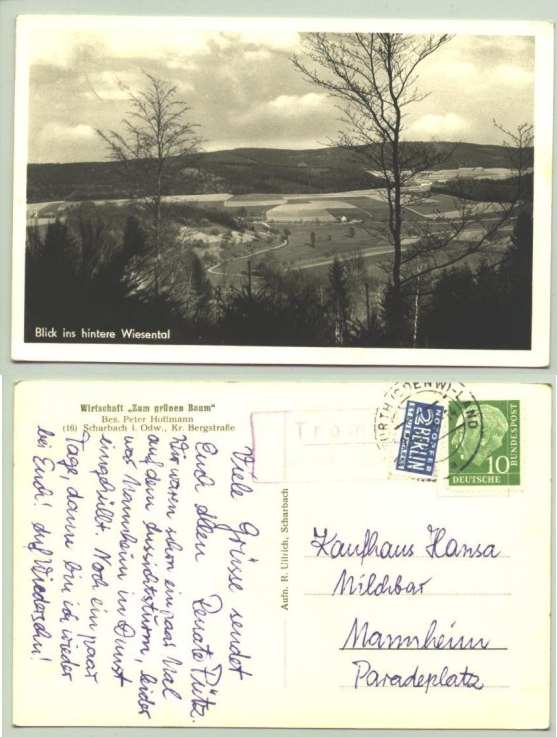 Blick ins hintere Wiesental
Wirtschaft „Zum grünen Baum"
Bes. Peter Hoffmann
(16) Scharbach i. Odw., Kr. Bergstraße
Viele Grüsse sendet
Euch allen Renate Pütz.
Wir waren schon ein paar Mal
auf dem Aussichtsturm, leider
war Mannheim in Dunst
eingehüllt. Noch ein paar
Tage, dann bin ich wieder
bei Euch! Auf Wiedersehn!
Aufn. R. Ullrich, Scharbach
Trom
NOTOPFER
2 BERLIN
STEUERMARKE
FÜRTH (ODENW)-LAND
10
DEUTSCHE
BUNDESPOST
Kaufhaus Hansa
Milchbar
Mannheim
Paradeplatz